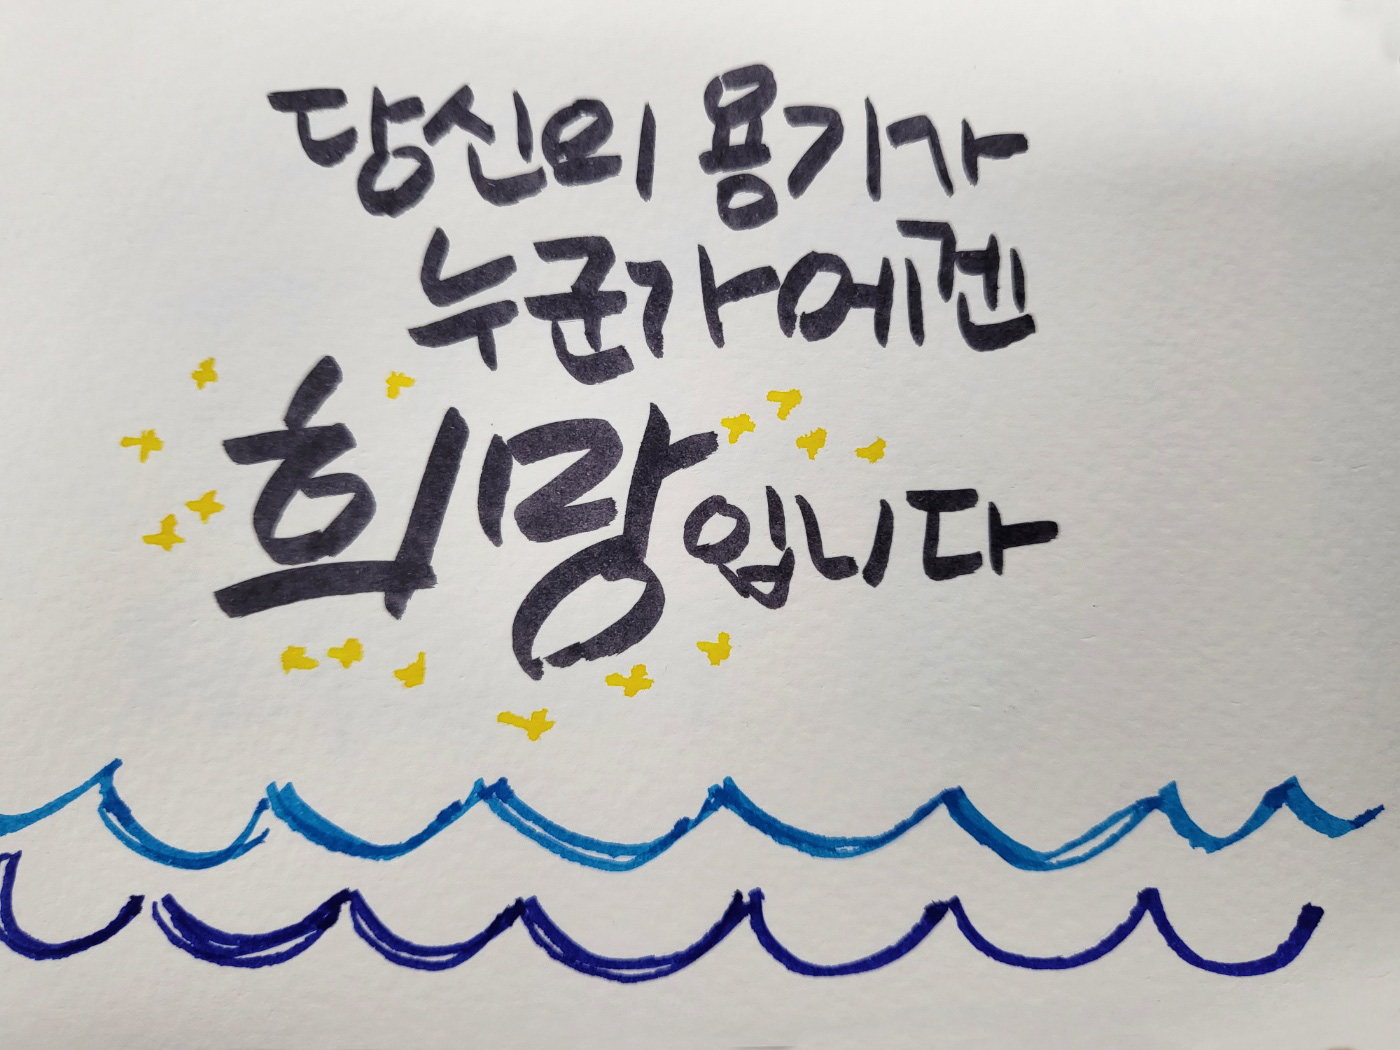 당신의 용기가
누군가에겐
희망입니다